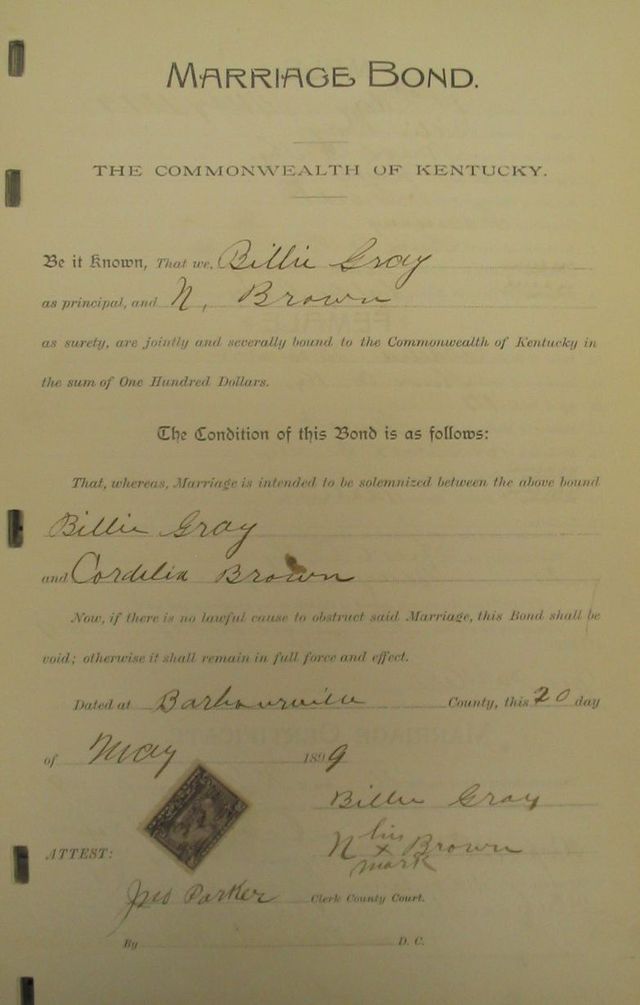 MARRIAGE BOND.
THE COMMONWEALTH OF KENTUCKY.
Be it Known, That we, Billie Gray
as principal, and N, Brown
as surety, are jointly and severally bound to the Commonwealth of Kentucky in
the sum of One Hundred Dollars.
The Condition of this Bond is as follows:
That, whereas, Marriage is intended to be solemnized between the above bound
Billie Gray
and Cordelia Brown
Now, if there is no lawful cause to obstruct said Marriage, this Bond shall be
void; otherwise it shall remain in full force and effect.
Dated at Barbourville County, this 20 day
of May 1899
Billie Gray
his
N x Brown
mark
ATTEST:
Jno Parker Clerk County Court.
By D. C.